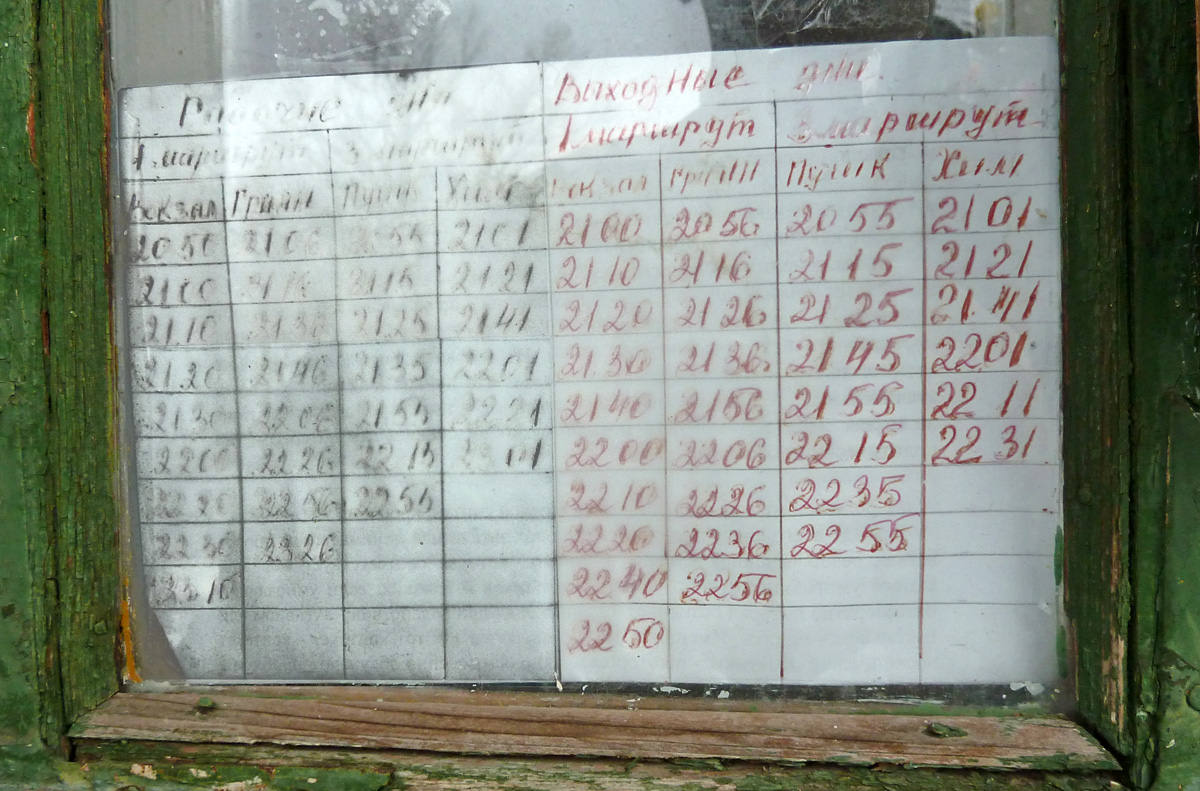 Рабочие дни Выходные дни
1 маршрут 3 маршрут 1 маршрут 3 маршрут
Вокзал Гралн Пушк Хим Вокзал Гралн Пушк Хим
2050 2106 2055 2101 2100 2056 2055 2101
2100 2115 2121 2110 2116 2115 2121
2110 2125 2141 2120 2126 2125 2141
2120 2146 2135 2201 2130 2136 2145 2201
2130 2206 2155 2221 2140 2156 2155 2211
2200 2226 2215 2200 2206 2215 2231
2220 2256 2255 2210 2226 2235
2250 2326 2220 2236 2255
2310 2240 2256
2250